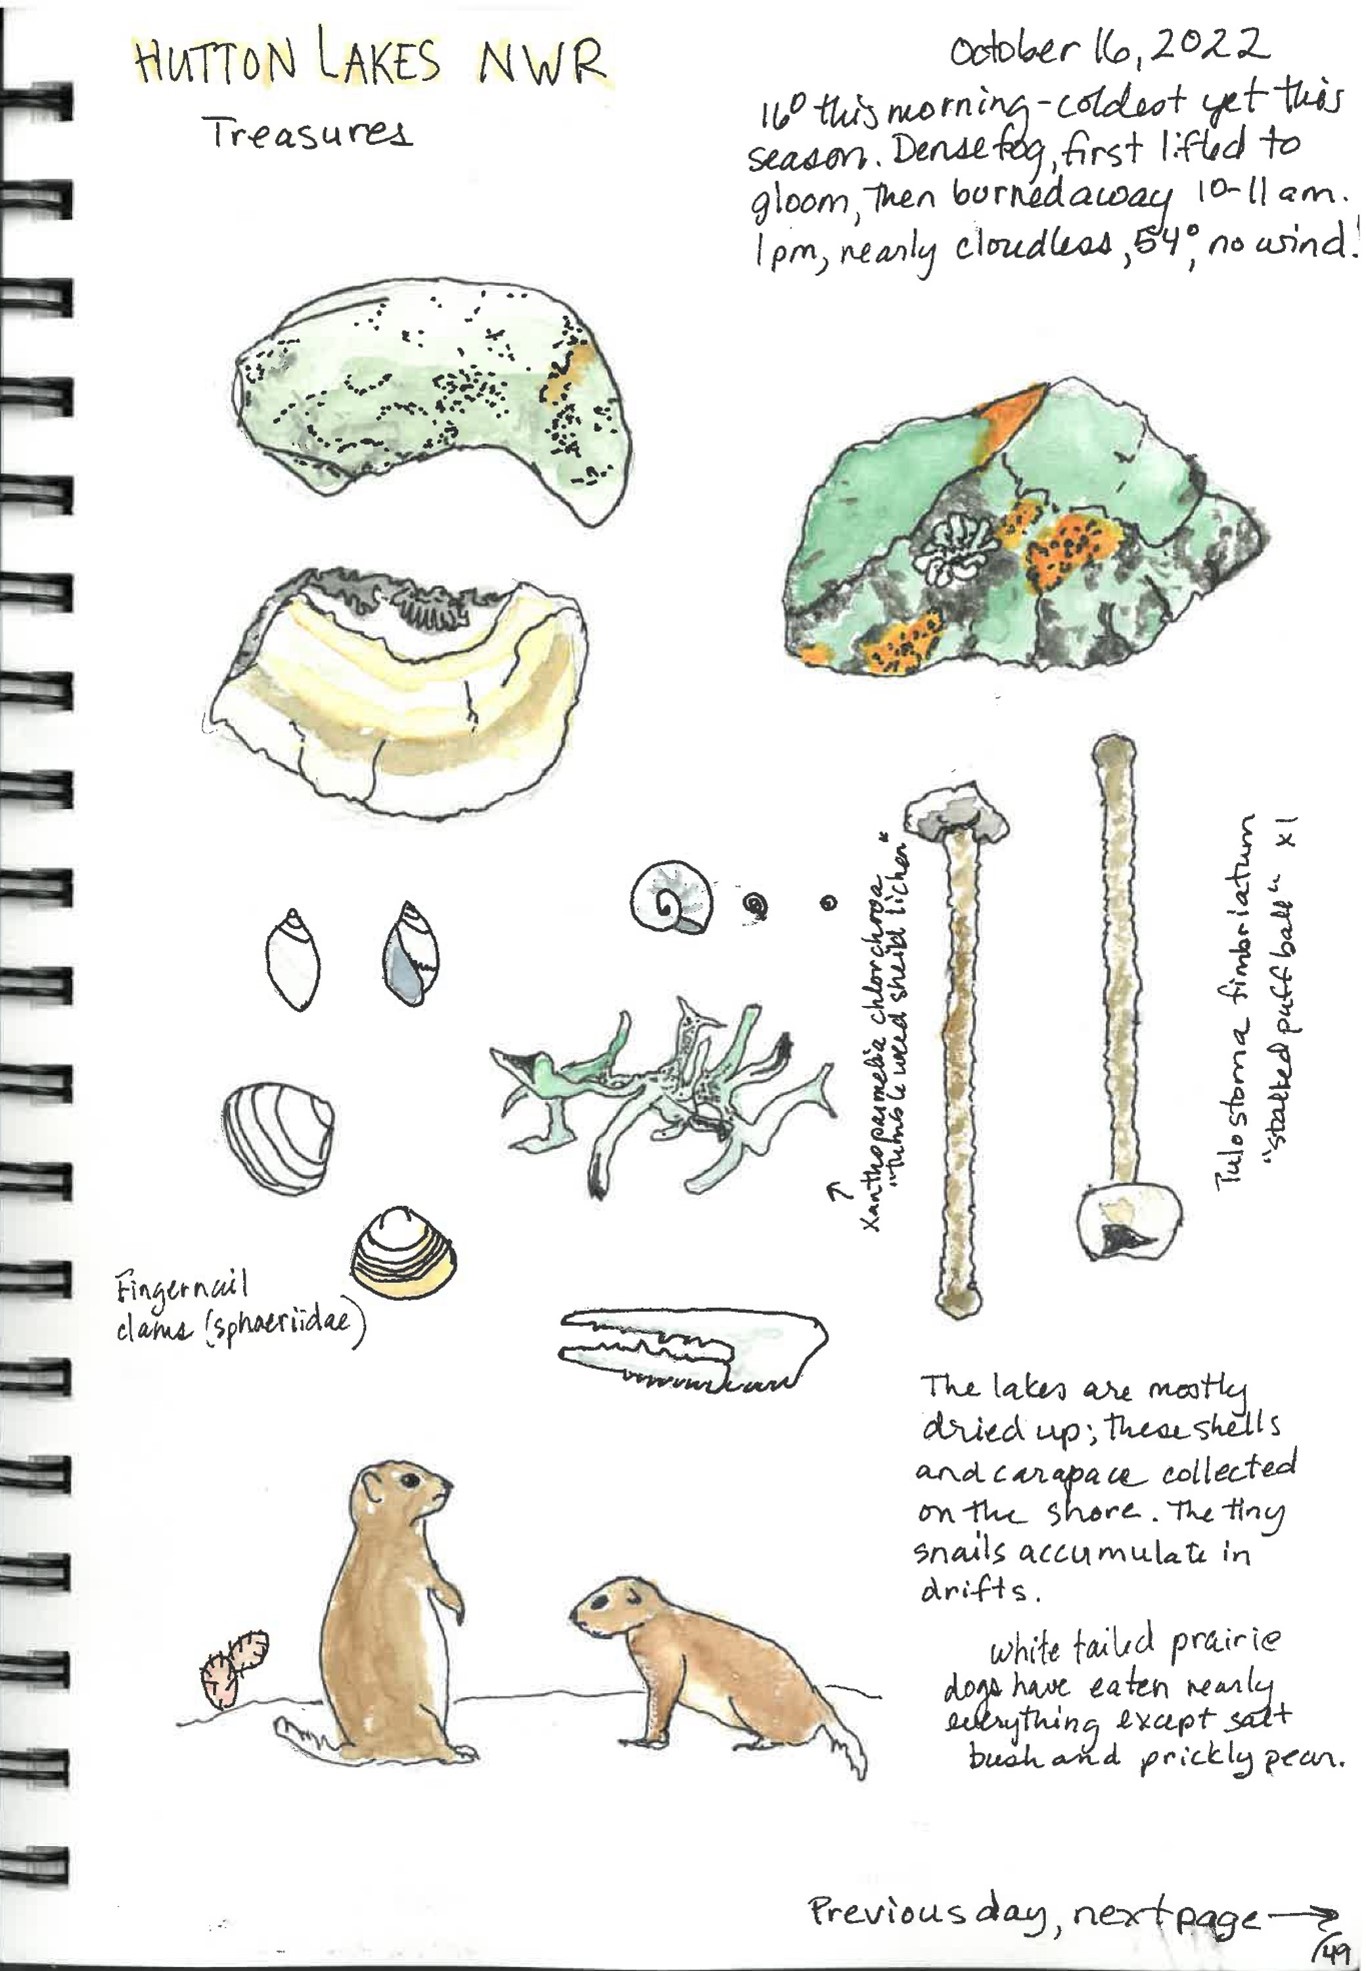 HUTTON LAKES NWR
Treasures
October 16, 2022
16° this morning - coldest yet this
season. Dense fog, first lifted to
gloom, then burned away 10-11 am.
1 pm, nearly cloudless, 54°, no wind!
Xanthoparmelia chlorchroa
"Tumble weed sheild lichen"
Tulostoma fimbriatum
"stalked puffball" x1
Fingernail
clams (sphaeriidae)
The lakes are mostly
dried up; these shells
and carapace collected
on the shore. The tiny
snails accumulate in
drifts.
White tailed prairie
dogs have eaten nearly
everything except salt
bush and prickly pear.
Previous day, next page →
149